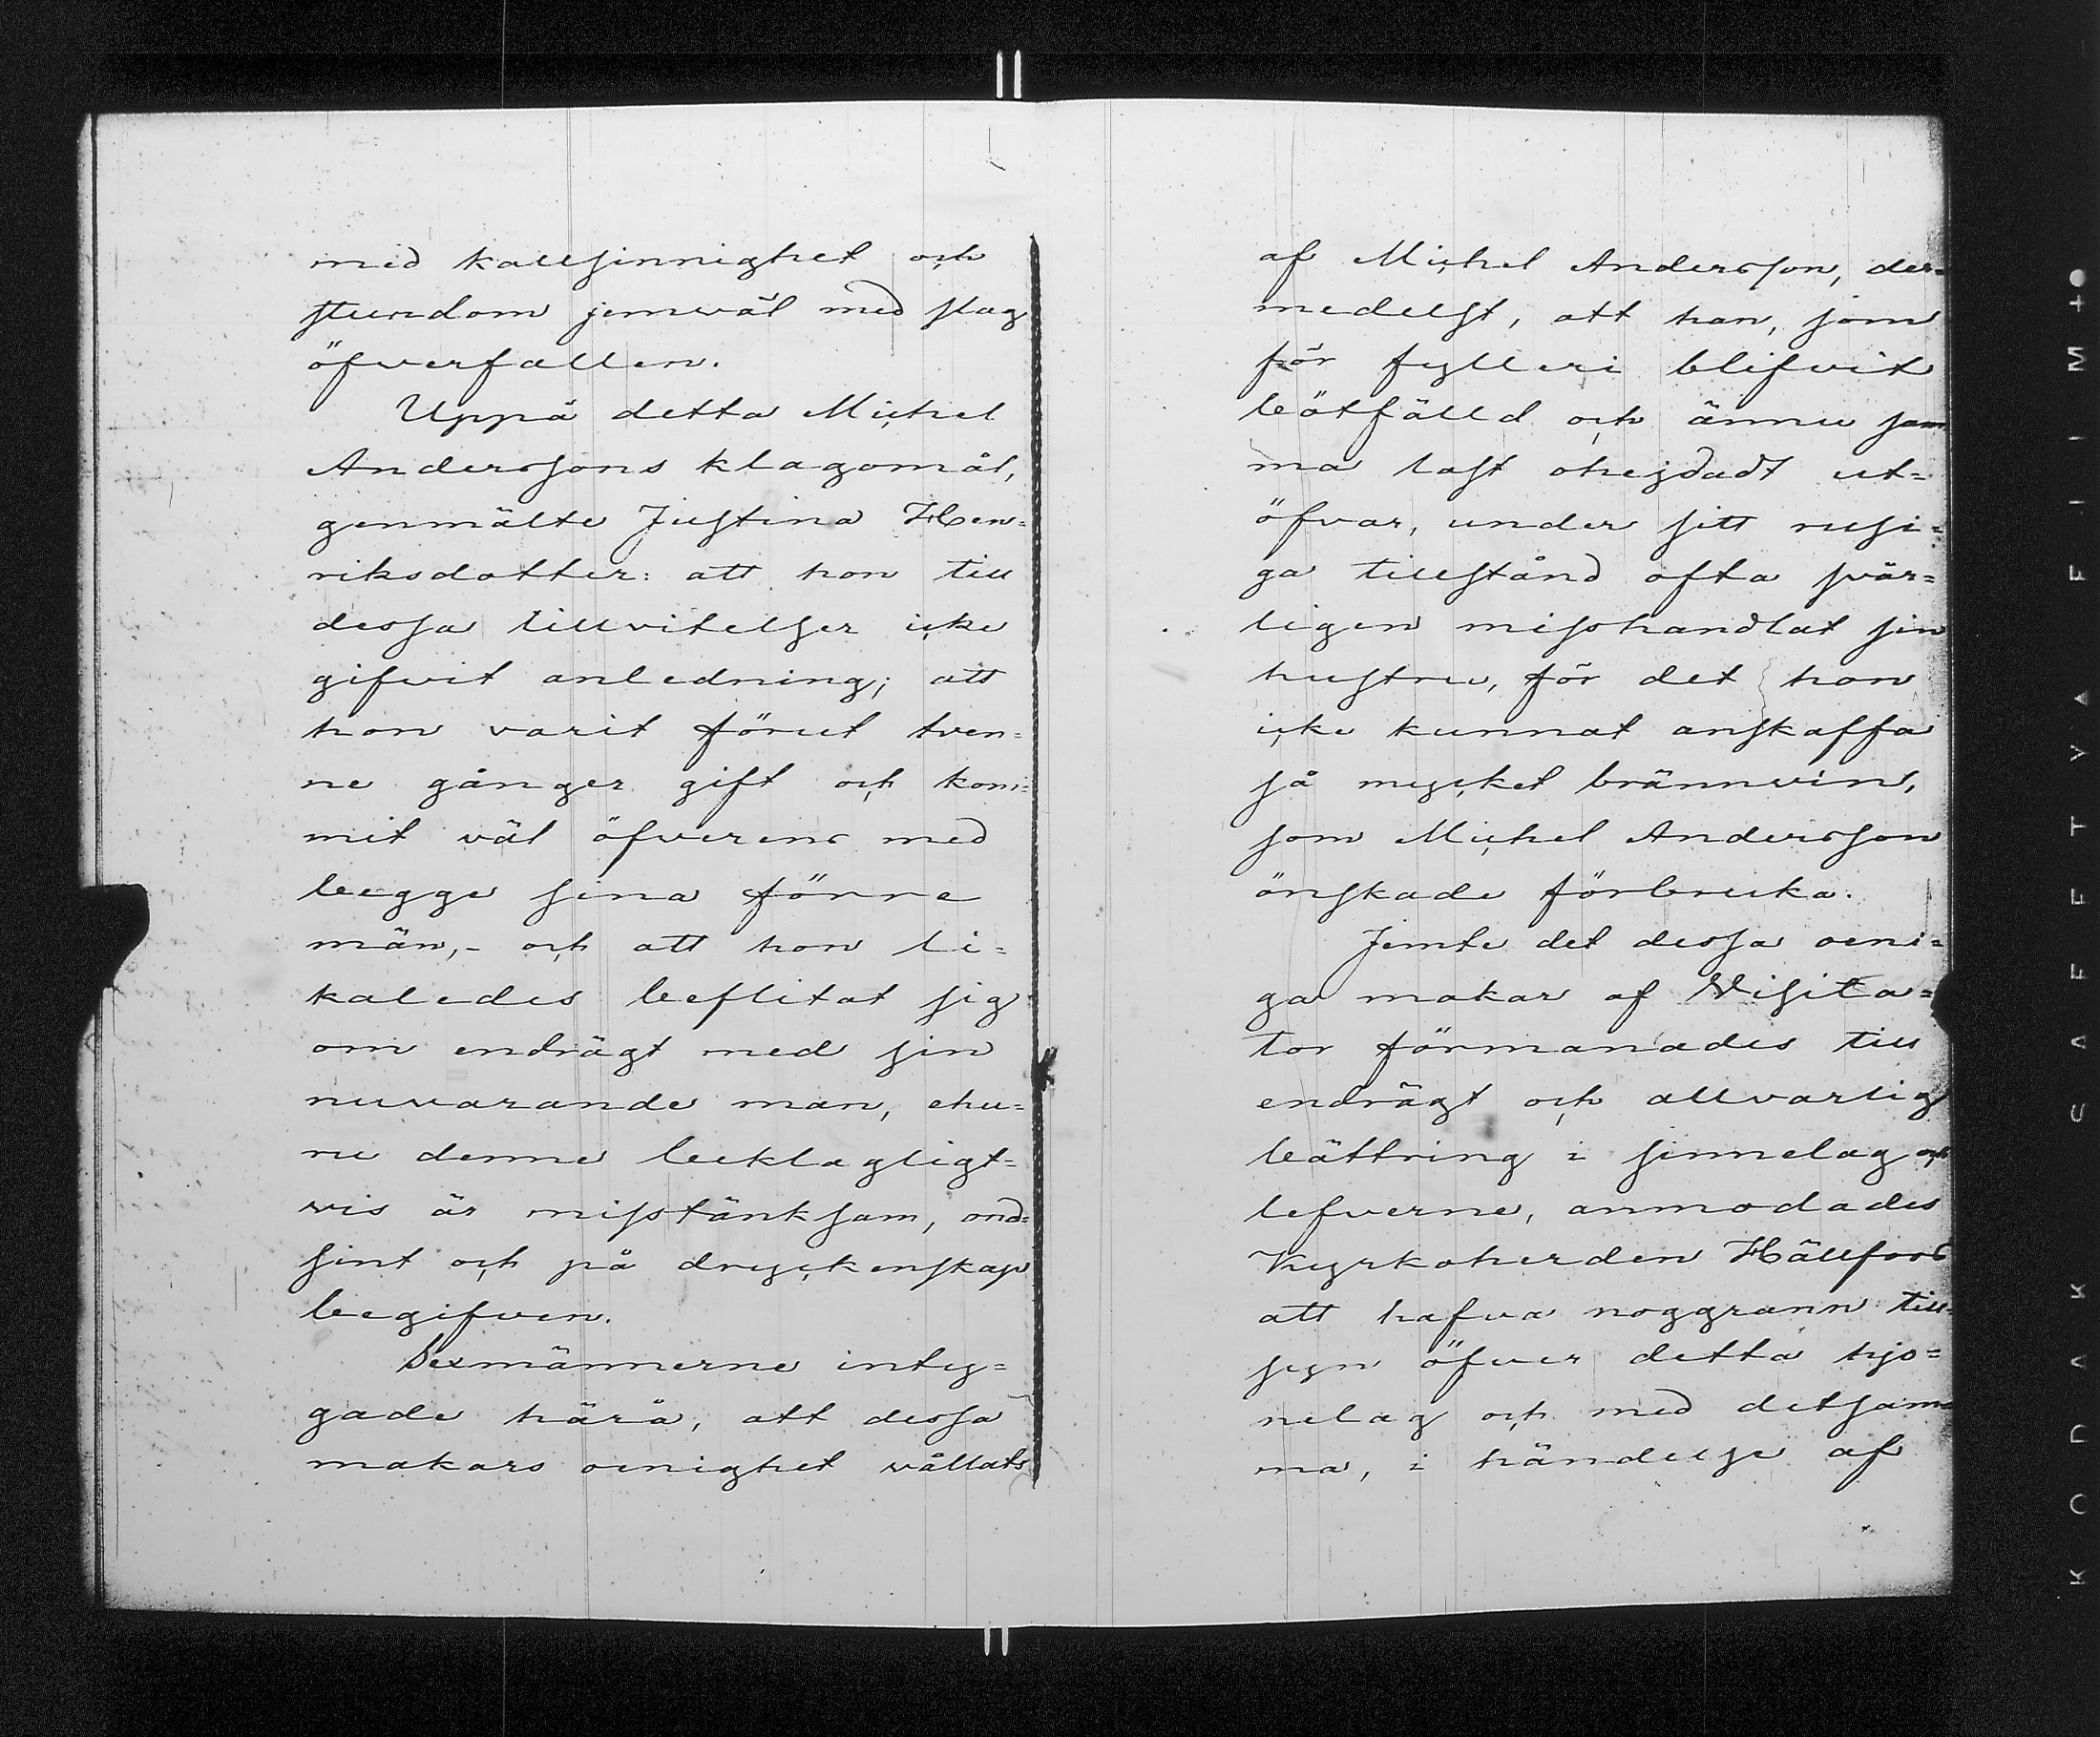 med kallsinnighet och
stundom jemväl med slag
öfverfallen.
Uppå detta Michel
Anderssons klagomål,
genmälte Justina Hen=
riksdotter: att hon till
dessa tillvitelser icke
gifvit anledning; att
hon varit förut tven=
ne gånger gift och kom=
mit väl öfverens med
begge sina förre
män,- och att hon li=
kaledes beflitat sig
om endrägt med sin
nuvarande man, ehu=
ru denne beklagligt=
vis är misstänksam, ond=
sint och på dryckenskap
begifven.
Sexmännerne inty=
gade härå, att dessa
makars oenighet vållats
af Michel Andersson, der=
medelst, att han, som
för fylleri blifvit
bötfälld och ännu sam
ma last ohejdadt ut=
öfvar, under sitt rusi=
ga tillstånd ofta svår=
ligen misshandlat sin
hustru, för det hon
icke kunnat anskaffa
så mycket brännvin,
som Michel Andersson
önskade förbruka.
Jemte det dessa oeni=
ga makar af Visita=
tor förmanades till
endrägt och allvarlig
bättring i sinnelag och
lefverne, anmodades
Kyrkoherden Hällfors
att hafva noggrann till=
syn öfver detta hjo=
nelag och med detsam=
ma, i händelse af
KODAK SAFETY FILM